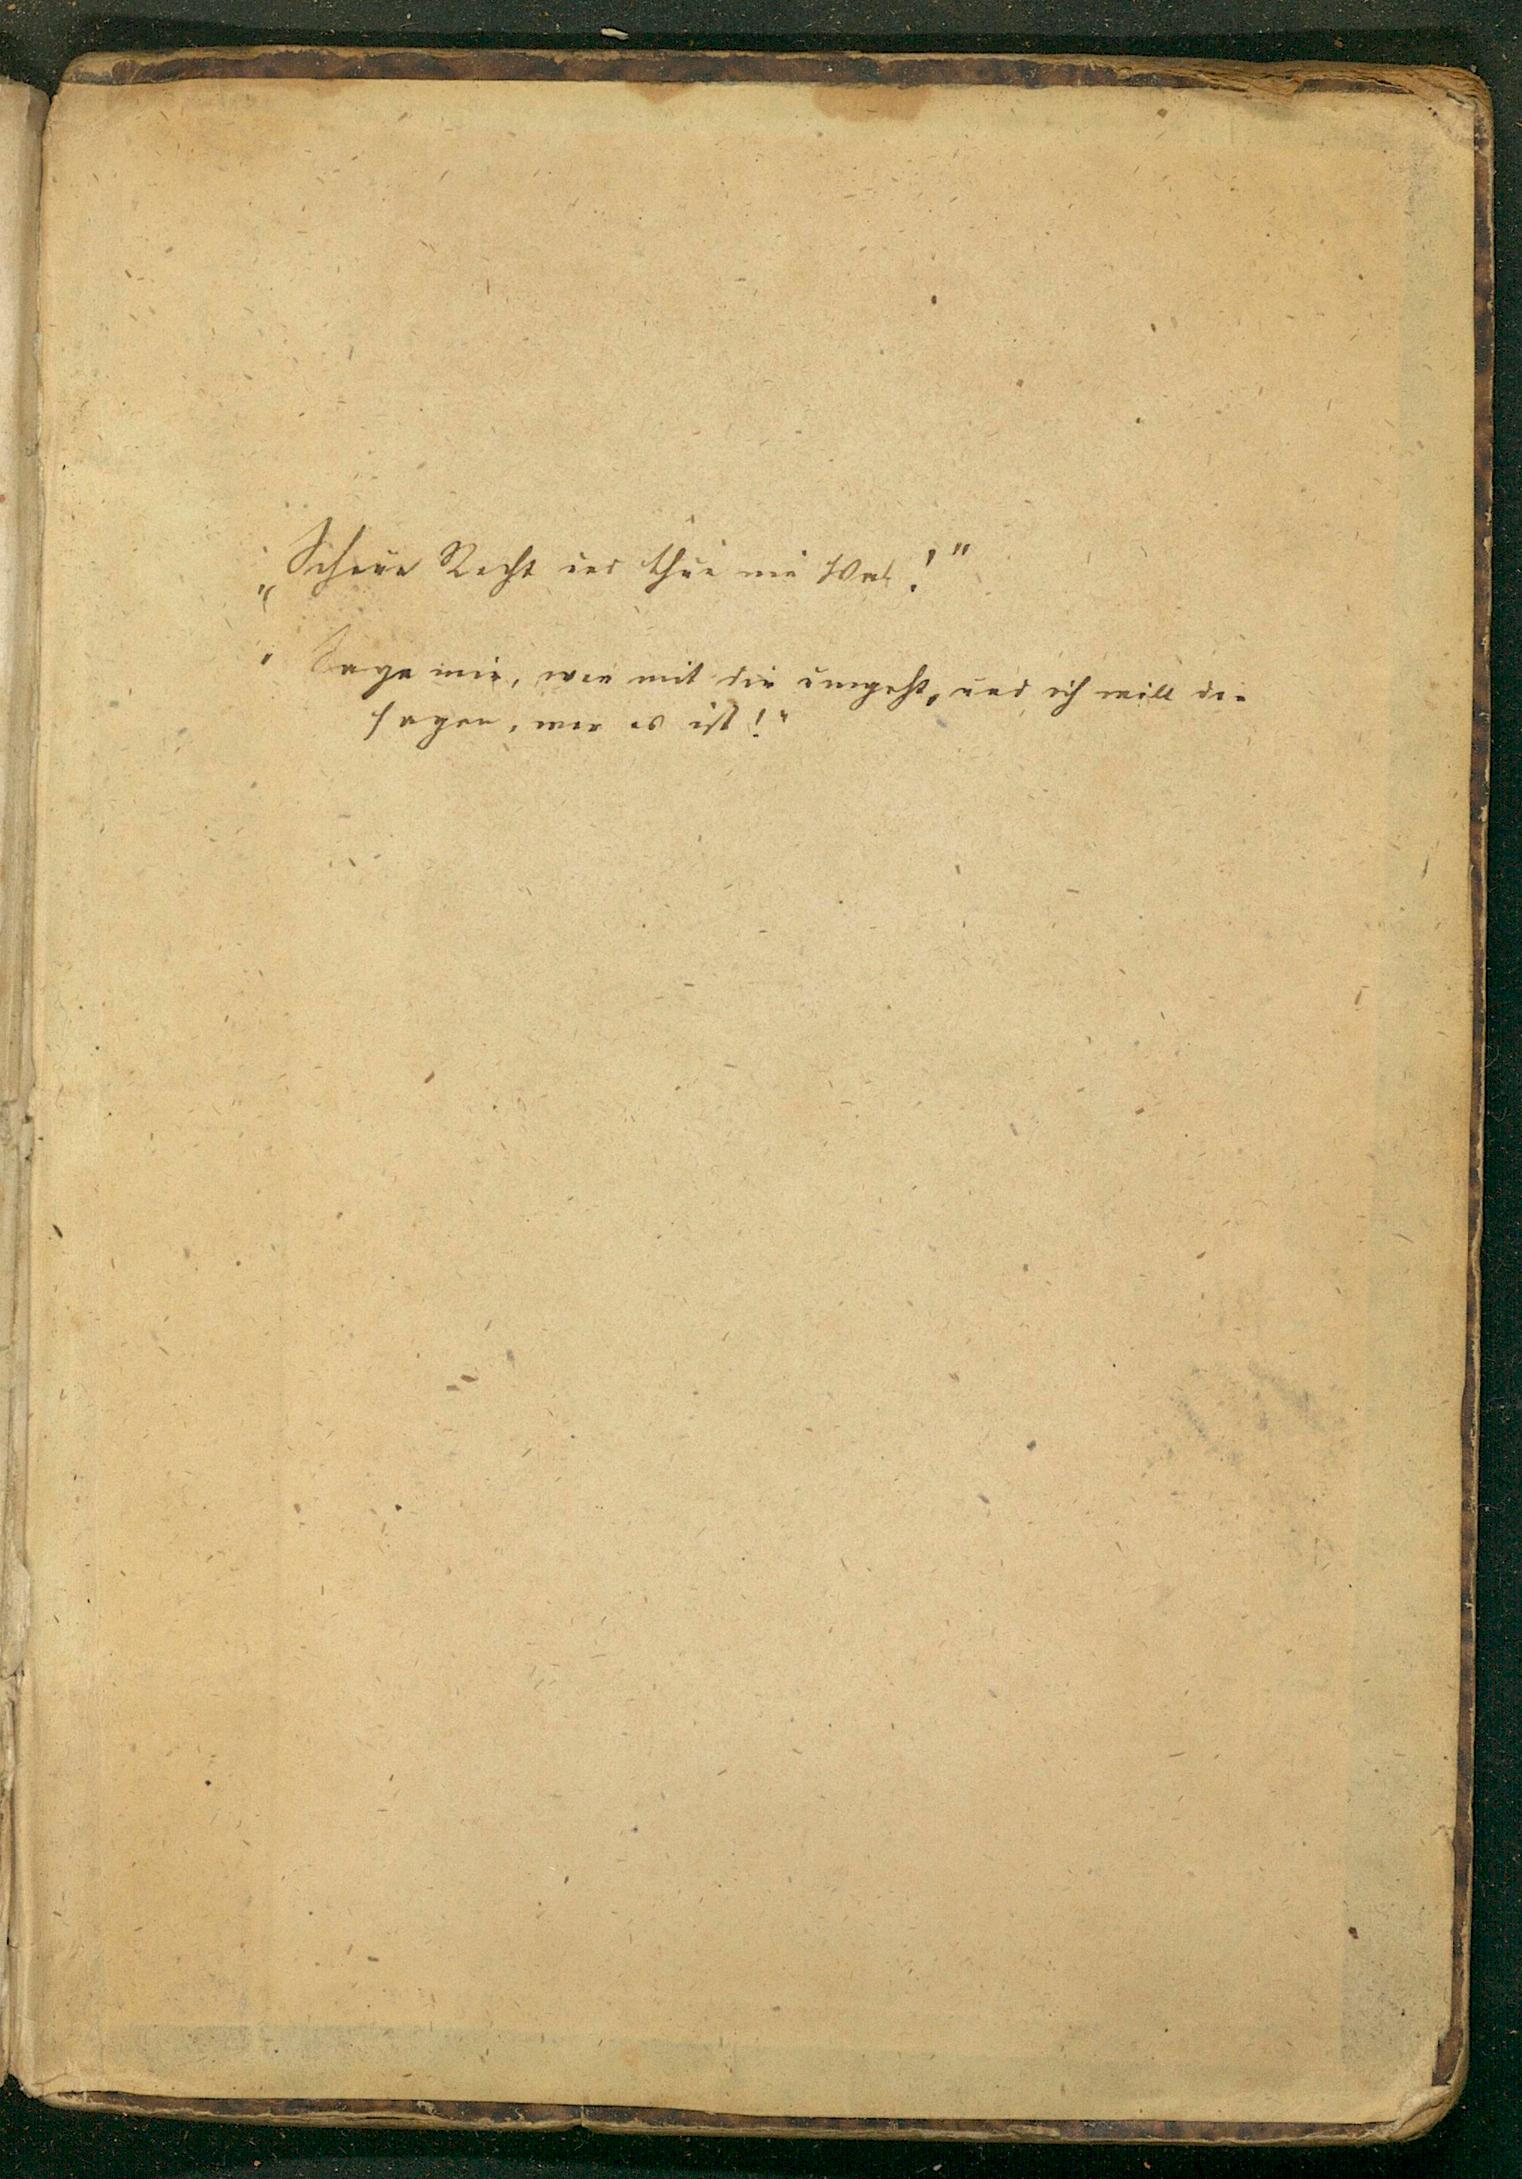 „Scheue Recht und thue nie Was!"
„Sage mir, wer mit dir umgeht, und ich will dir
sagen, wer es ist!"